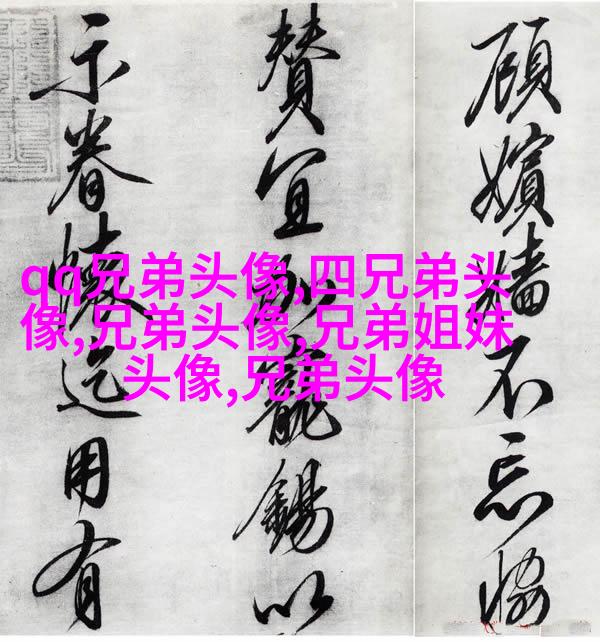 qq兄弟头像,四兄弟头
像,兄弟头像,兄弟姐妹
头像,兄弟头像
顧嬪嬙不忘恊
賛宜加寵錫以
示眷懷迄用有